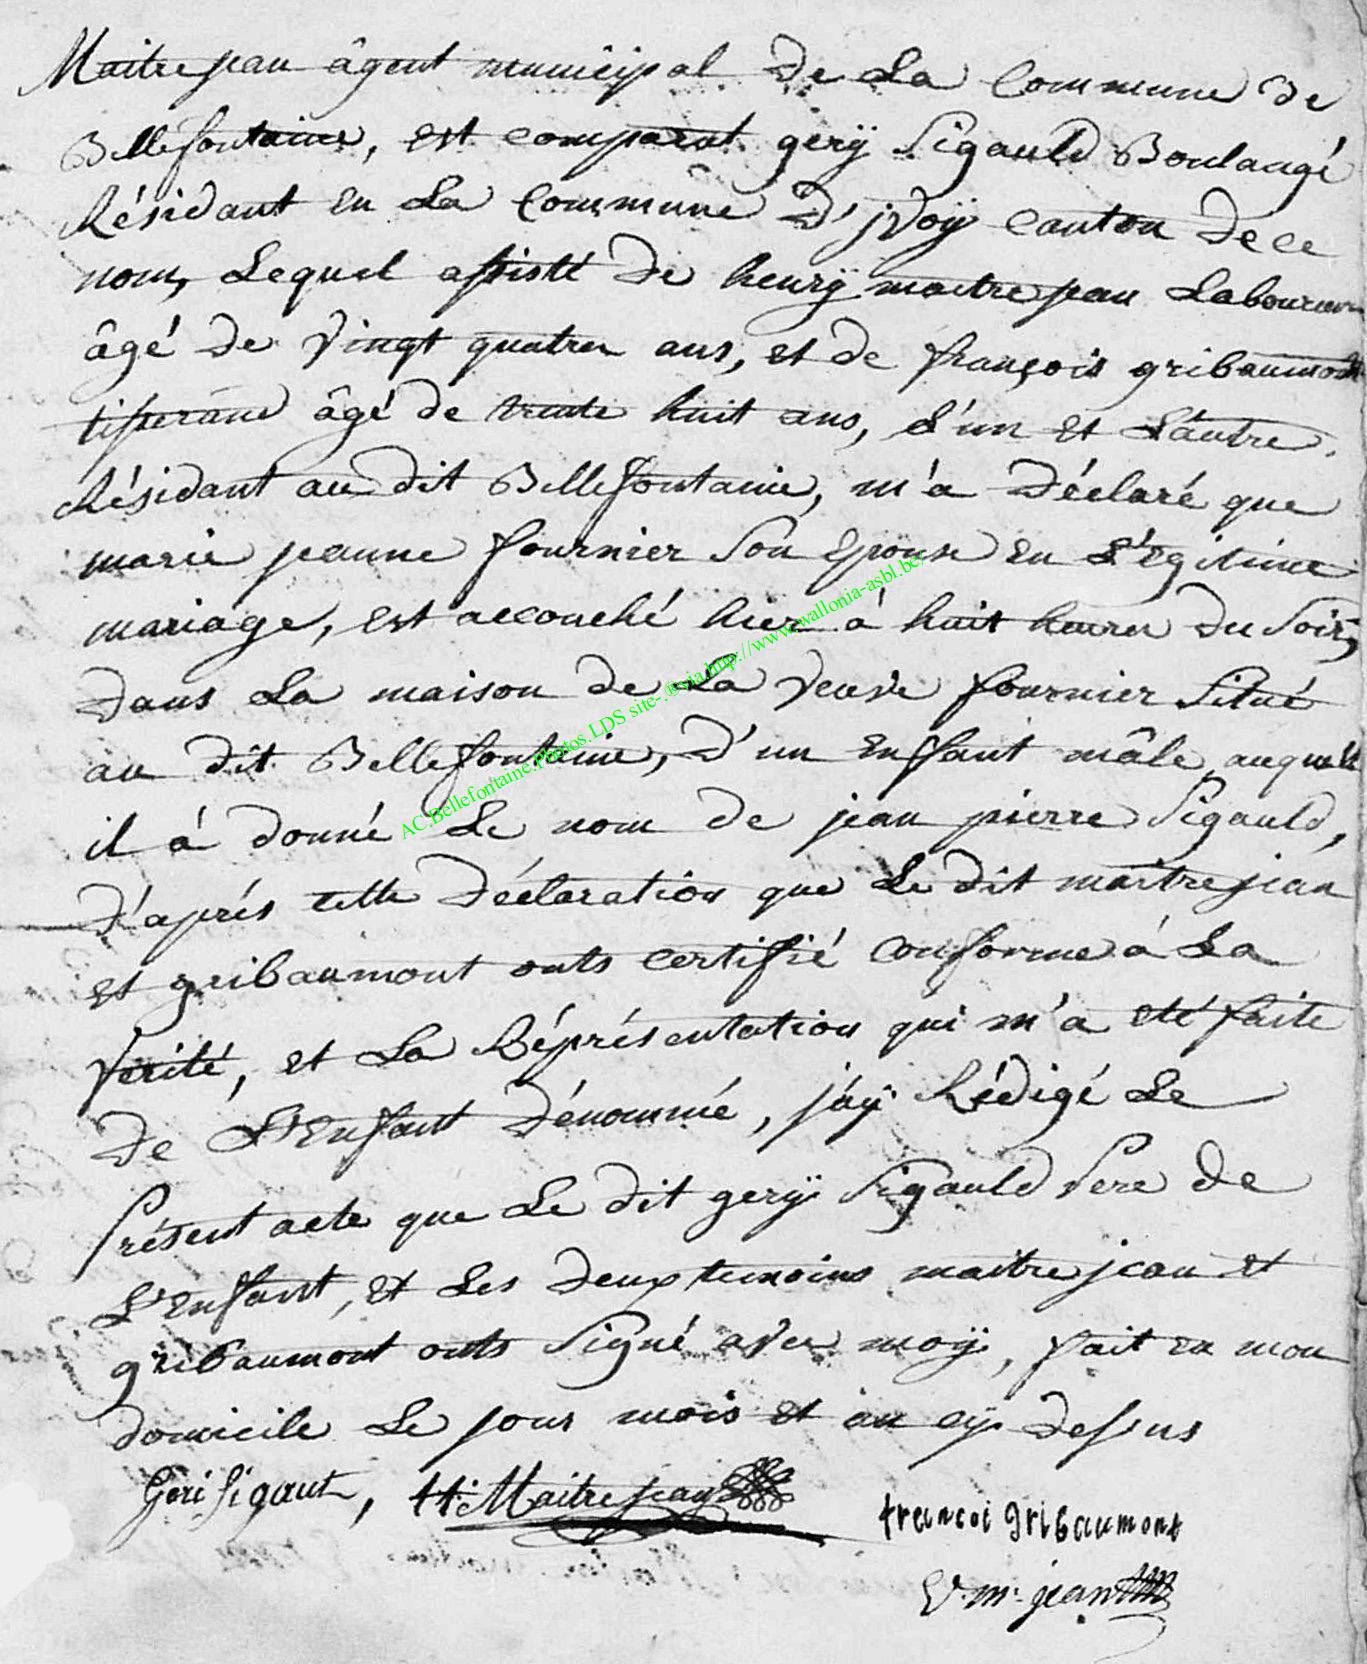 Maitrejean âgent municipal de La Commune de
Bellefontaine, est comparut gerÿ Sigauld Boulangé
Résidant en La Commune D'jvoÿ canton de ce
nom, Lequel assisté de henrÿ maitrejean Laboureur
âgé de vingt quatre ans, et de françois gribaumont
tisserane âgé de trente huit ans, L'un et L'autre
Résidant au dit Bellefontaine, m'a Déclaré que
marie jeanne fournier son Epouse en L'Egitime
mariage, est accouché hier à huit heures du Soir,
dans La maison de La veuve fournier Situé
au dit Bellefontaine, D'un Enffant mâle auquel
il à donné Le nom de jean pierre Sigauld,
D'aprés cette déclaration que Le dit maitrejean
et gribaumont onts certiffié conforme à La
verité, et La Réprésentation qui m'a eté faite
de L'Enfant dénommé, j'áÿ Rédigé Le
Présent acte que Le dit gerÿ Sigauld Pere de
L'Enffant, et Les deux temoins maitrejean et
gribaumont onts Signé avec moÿ, fait en mon
domicile Le jour mois et àn cÿ dessus
Geri sigaut, H: Maitrejean
francoi gribaumont
V. m: jean
AC.Bellefontaine.Photos.LDS site-.@via.http://www.wallonia-asbl.be/